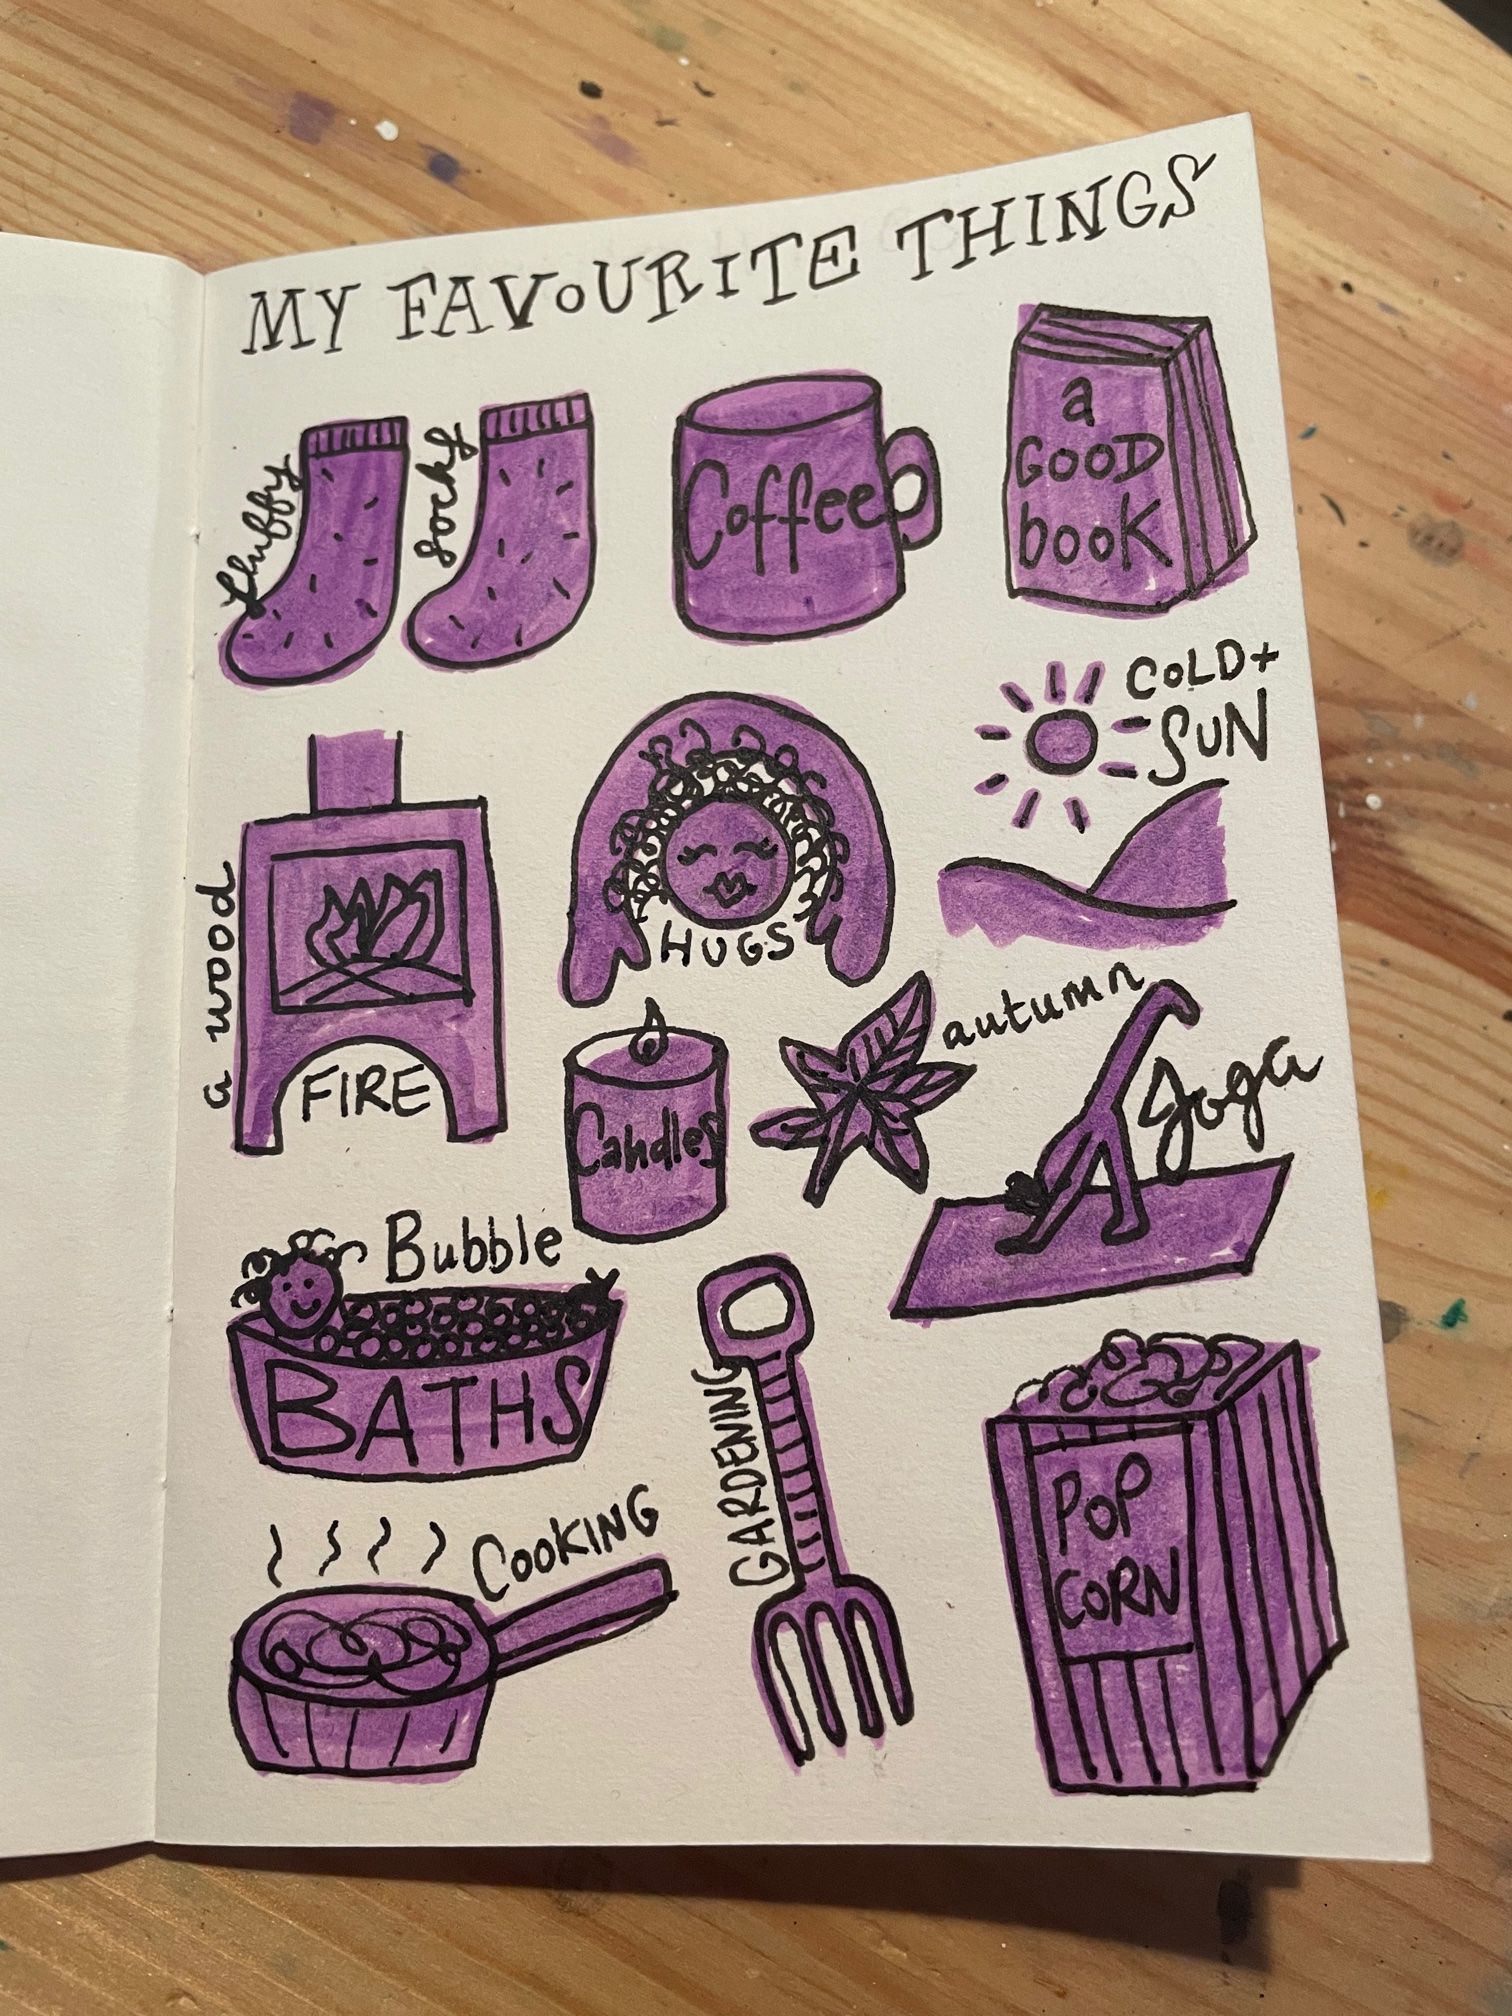 MY FAVOURITE THINGS
fluffy
socks
Coffee
a
GOOD
book
COLD +
SUN
a wood
FIRE
HUGS
Candles
autumn
Yoga
Bubble
BATHS
GARDENING
COOKING
POP
CORN